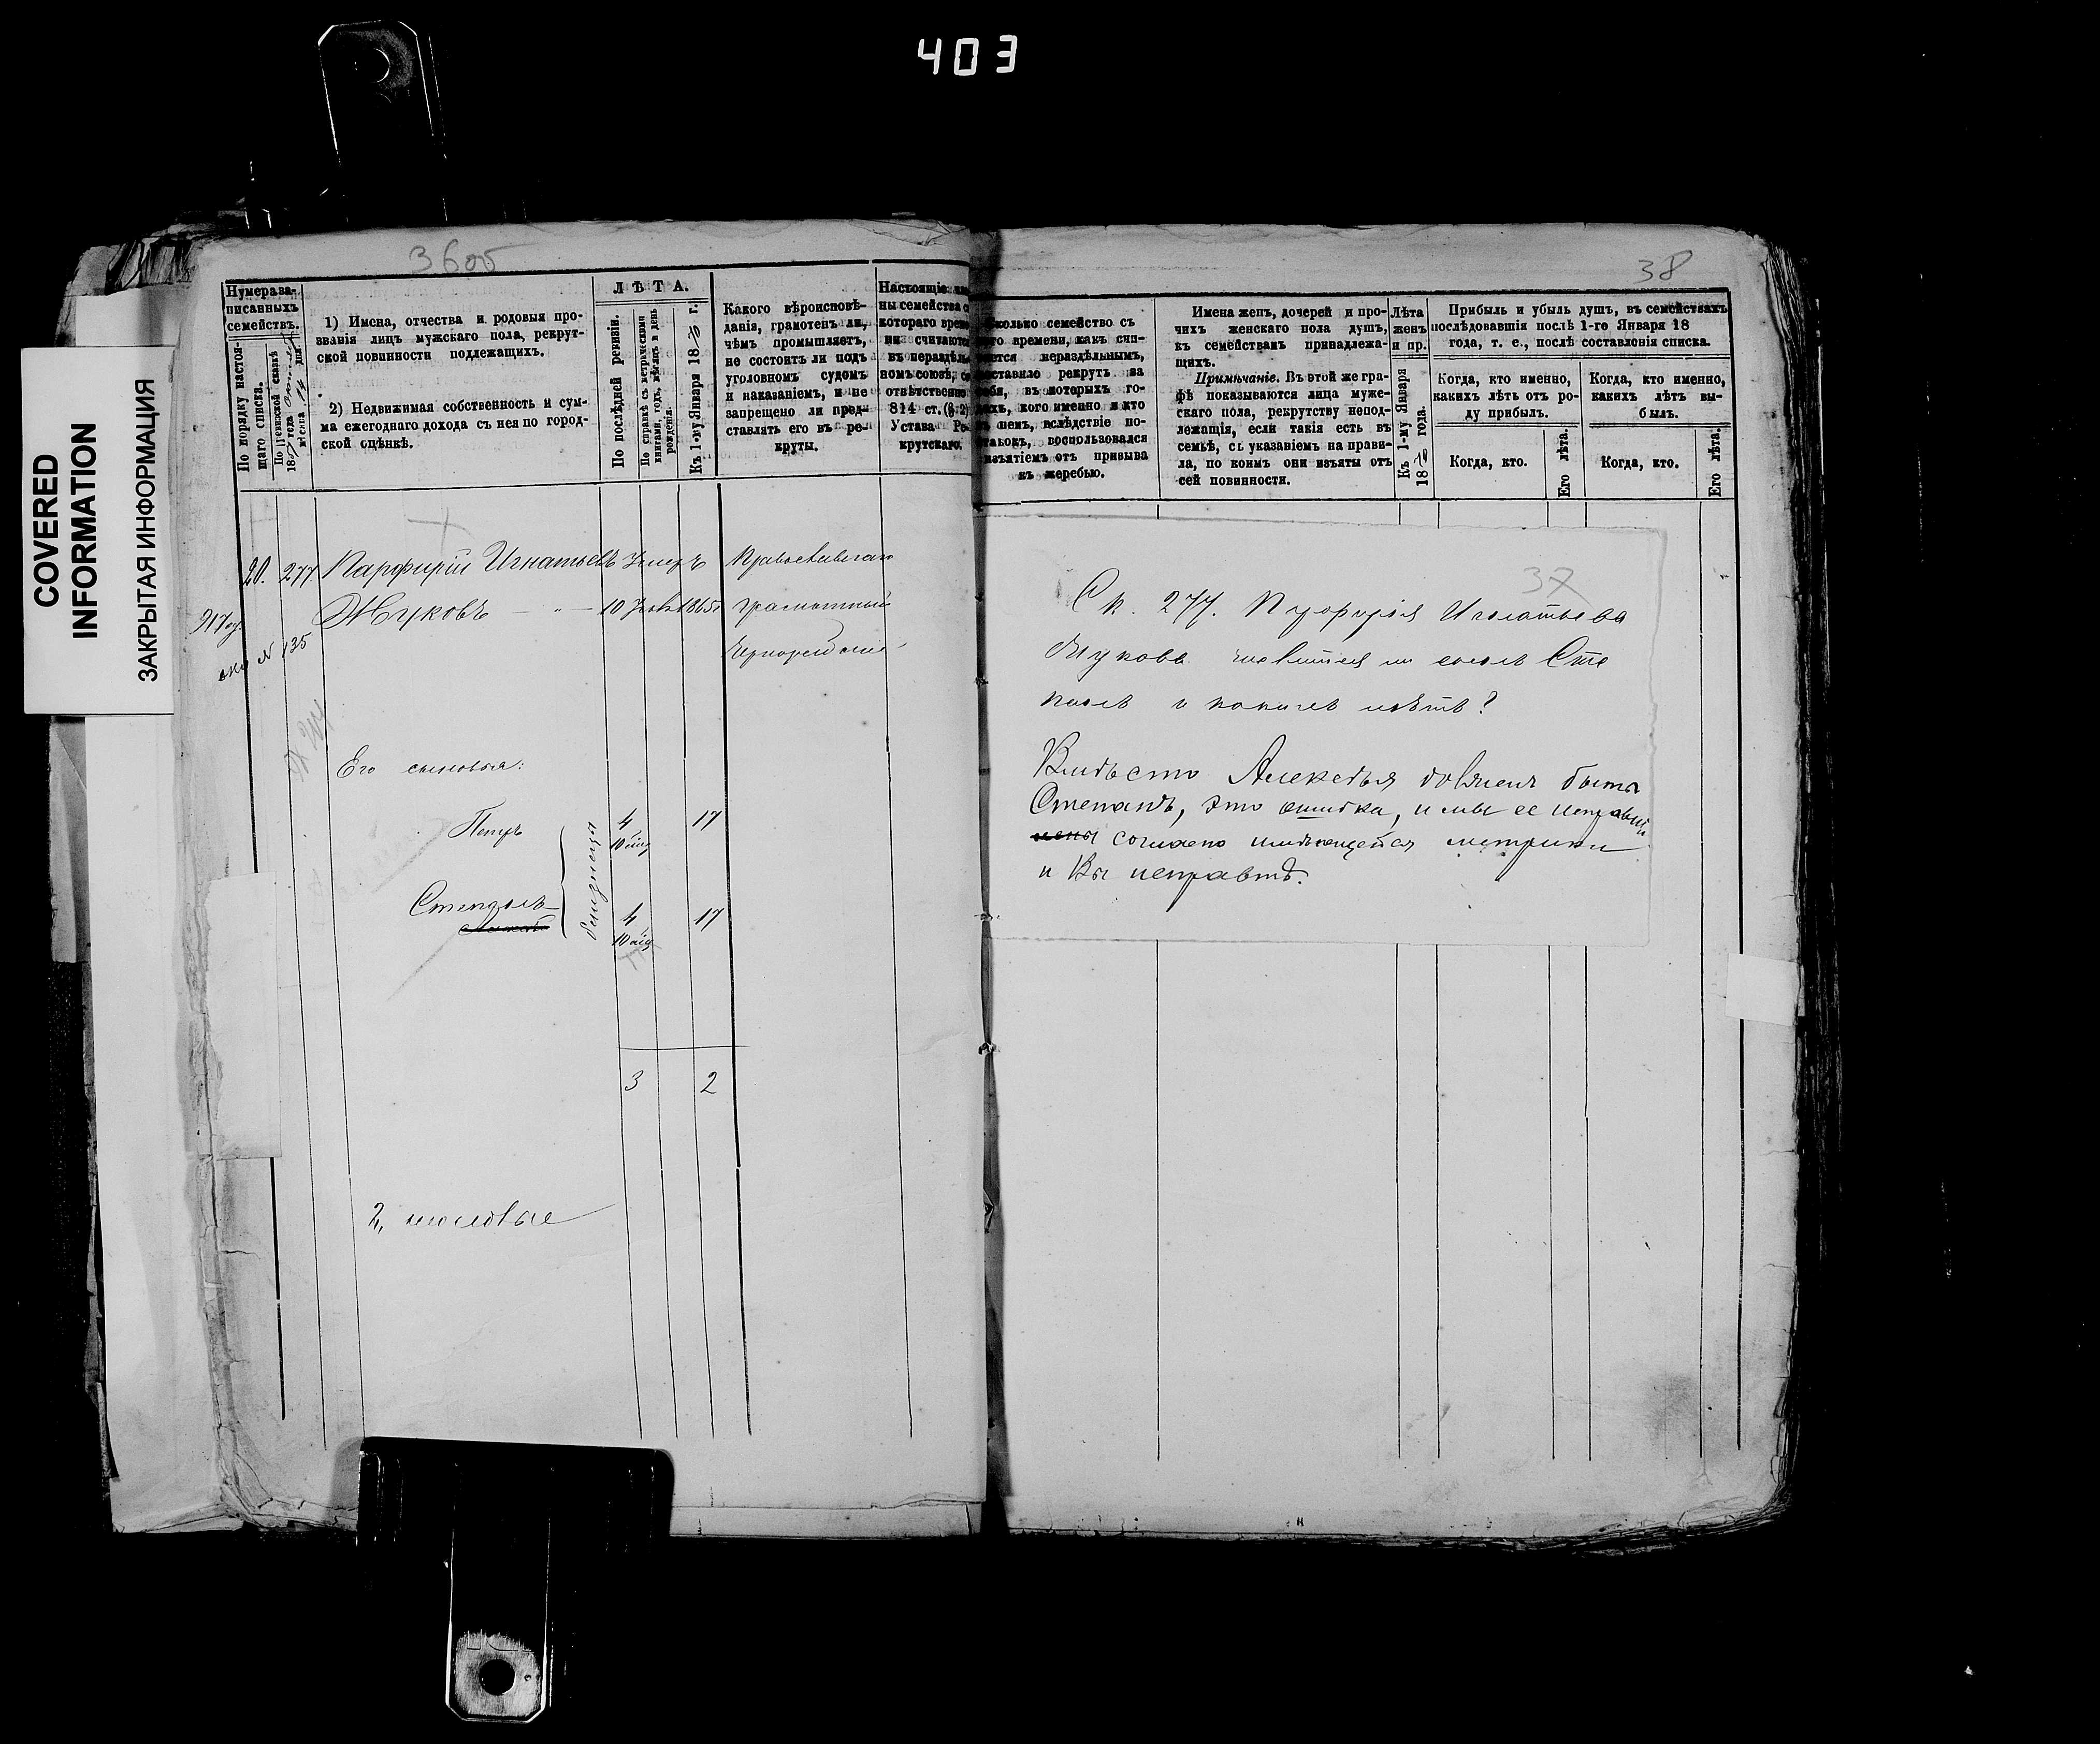 403
COVERED
INFORMATION
ЗАКРЫТАЯ ИНФОРМАЦИЯ
36об
Нумера за-
писанныхъ
семействъ.
По порядку настоя-
щаго списка.
По ревизской сказкѣ
1857 года
мѣсяца 14 дня.
1) Имена, отчества и родовыя про-
званія лицъ мужскаго пола, рекрут-
ской повинности подлежащихъ.
2) Недвижимая собственность и сум-
ма ежегоднаго дохода съ нея по город-
ской оцѣнкѣ.
ЛѢТА.
По послѣдней ревизіи.
По справкѣ съ метрическими
книгами, годъ, мѣсяцъ и день
рожденія.
Къ 1-му Января 1870 г.
Какого вѣроисповѣ-
данія, грамотенъ ли,
чѣмъ промышляетъ,
не состоитъ ли подъ
уголовномъ судомъ
и наказаніемъ, и не
запрещено ли пред-
ставлять его въ ре-
круты.
Настоящіе
ны семейства
котораго врем
ни считаются
въ нераздѣль
номъ союзѣ,
отвѣтственно
814 ст. (§ 2)
Устава Ре-
крутскаго.
20. 277. Парфирій Игнатьевъ Умеръ Православнаго
Жуковъ — " — 10 1865 грамотный
№ 135
Его сыновья:
Петръ 4 17
Степанъ 4 17
близнецы
3 2
38
Сколько семейство съ
того времени, какъ счи-
тается нераздѣльнымъ,
поставило рекрутъ за
себя, въ которыхъ го-
дахъ, кого именно и кто
въ немъ, вслѣдствіе по-
воспользовался
изъятіемъ отъ призыва
къ жеребью.
Имена женъ, дочерей и про-
чихъ женскаго пола душъ,
къ семействамъ принадлежа-
щихъ.
Примѣчаніе. Въ этой же гра-
фѣ показываются лица муже-
скаго пола, рекрутству непод-
лежащія, если такія есть въ
семьѣ, съ указаніемъ на прави-
ла, по коимъ они изъяты отъ
сей повинности.
Лѣта
женъ
и пр.
Къ 1-му Января
1870 года.
Прибыль и убыль душъ, въ семействахъ
послѣдовавшія послѣ 1-го Января 18
года, т. е., послѣ составленія списка.
Когда, кто именно,
какихъ лѣтъ отъ ро-
ду прибылъ.
Когда, кто именно,
какихъ лѣтъ вы-
былъ.
Когда, кто.
Его лѣта.
Когда, кто.
Его лѣта.
37
Ск. 277. Игнатьева
Жукова сынъ Сте
панъ и какихъ лѣтъ?
Вмѣсто Алексѣя долженъ быть
Степанъ, это ошибка, и мы ее исправи
согласно имѣющейся метрики
и Вы исправтѣ.